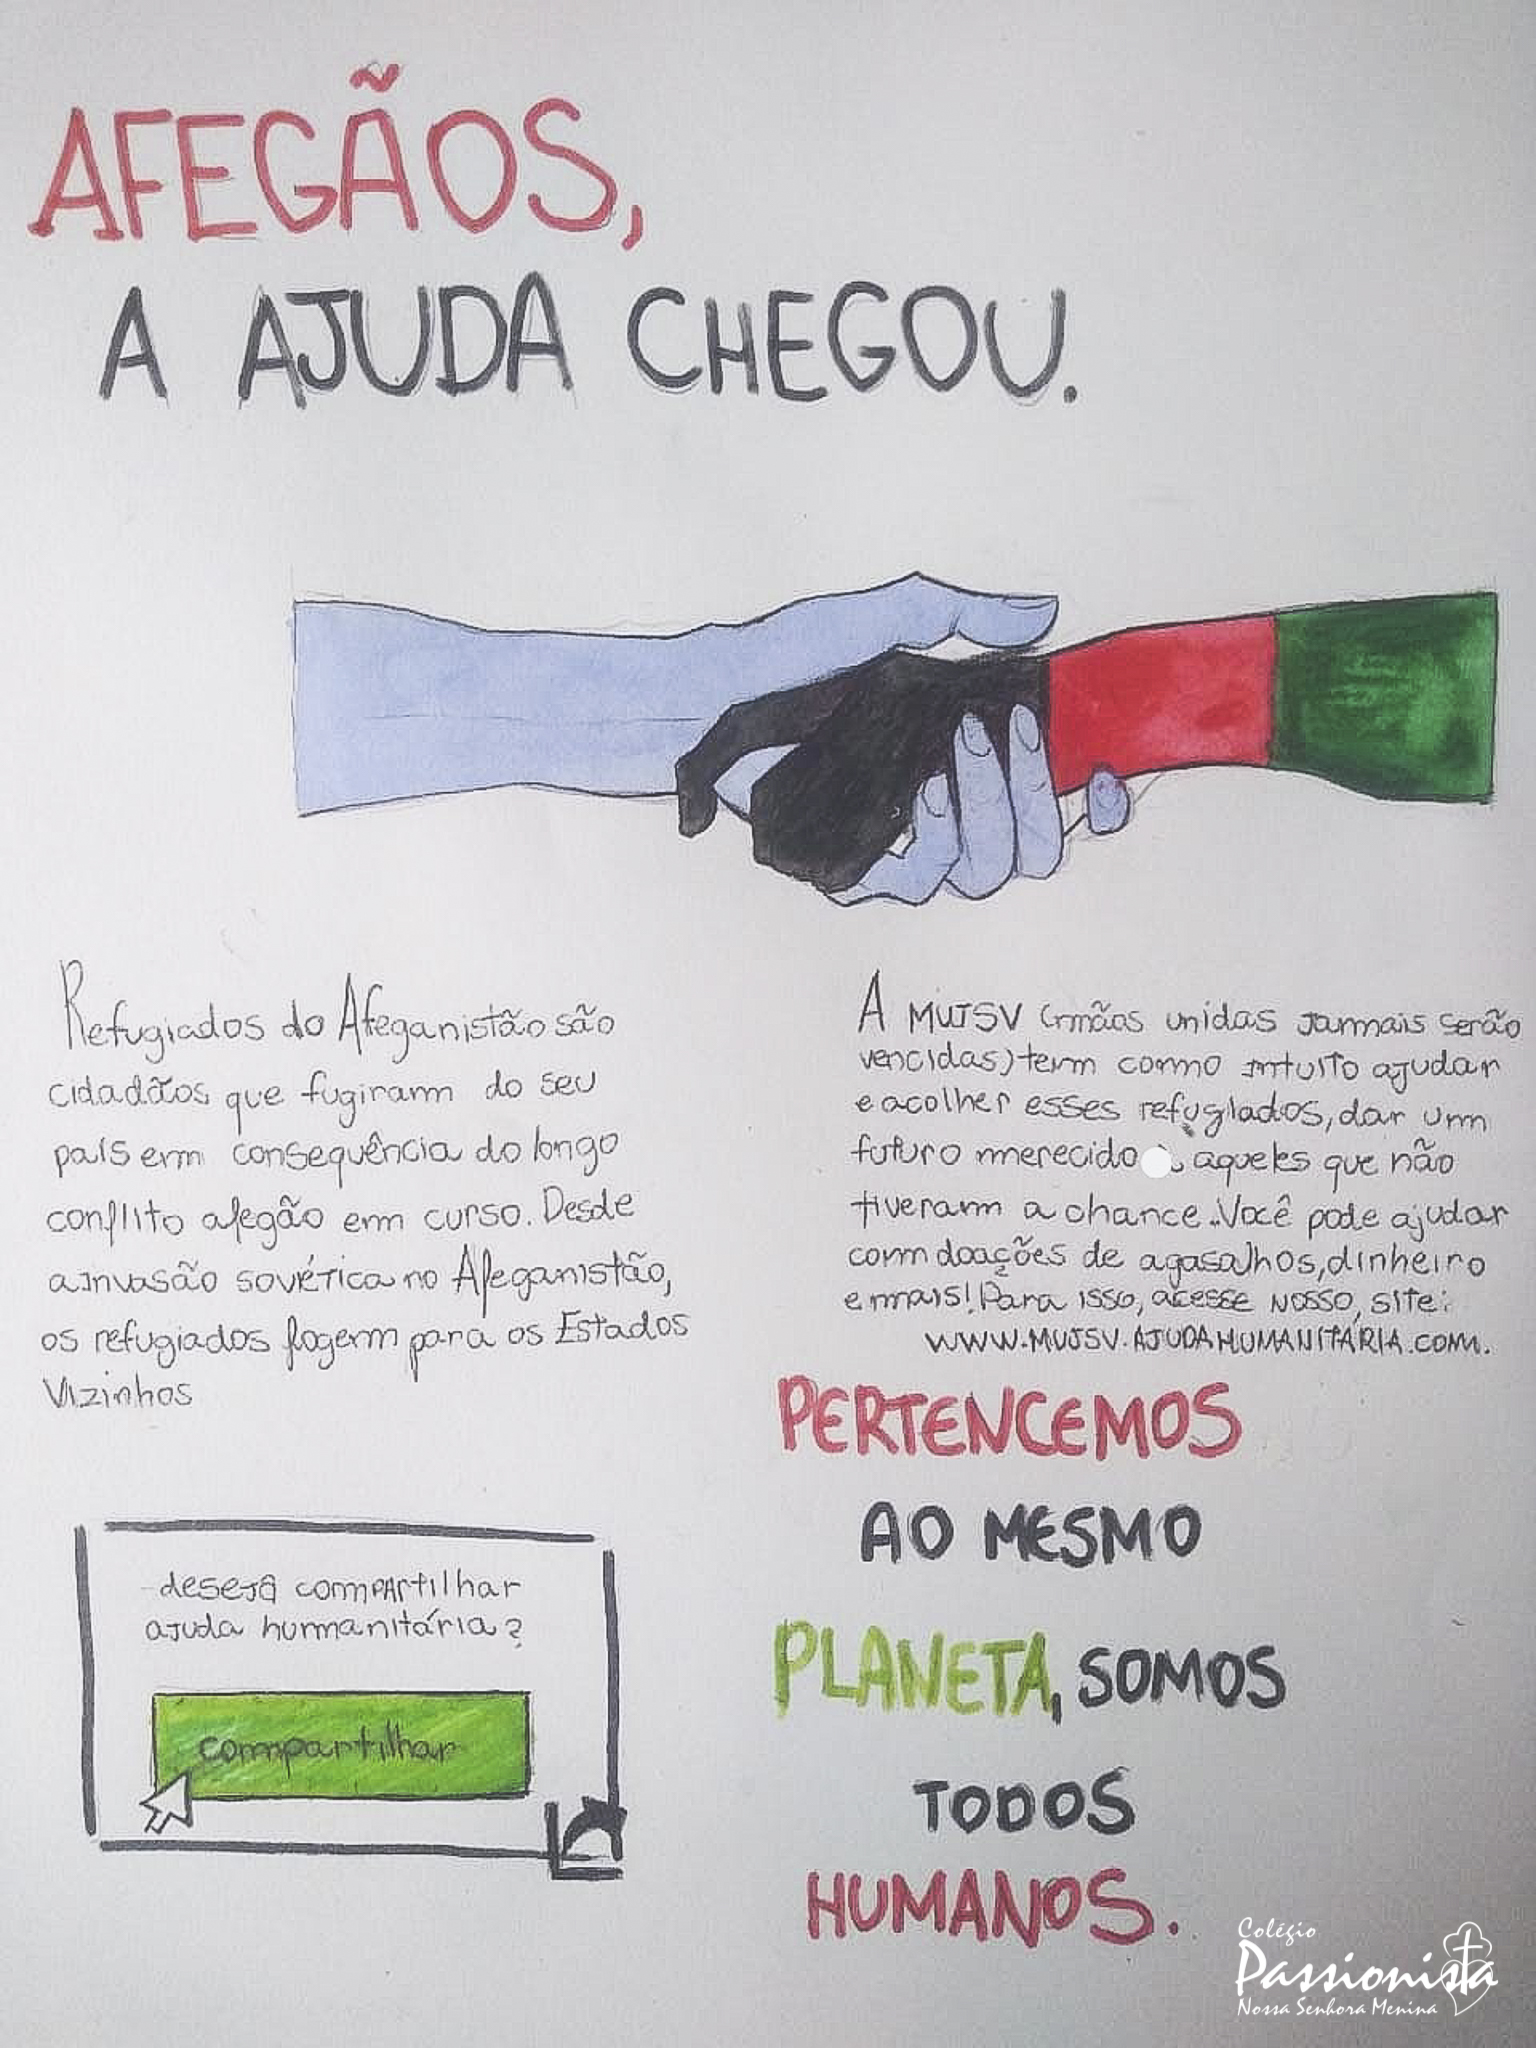 AFEGÃOS,
A AJUDA CHEGOU.
Refugiados do Afeganistão são
cidadãos que fugiram do seu
país em consequência do longo
conflito afegão em curso. Desde
a invasão soviética no Afeganistão,
os refugiados fogem para os Estados
Vizinhos
A MUJSV (irmãos unidas jamais serão
vencidas) tem como intuito ajudar
e acolher esses refugiados, dar um
futuro merecido aqueles que não
tiveram a chance. Você pode ajudar
com doações de agasalhos, dinheiro
e mais! Para isso, acesse nosso, site:
WWW.MUJSV.AJUDAHUMANITÁRIA.COM.
deseja compartilhar
ajuda humanitária?
compartilhar
PERTENCEMOS
AO MESMO
PLANETA, SOMOS
TODOS
HUMANOS.
Colégio
Passionista
Nossa Senhora Menina